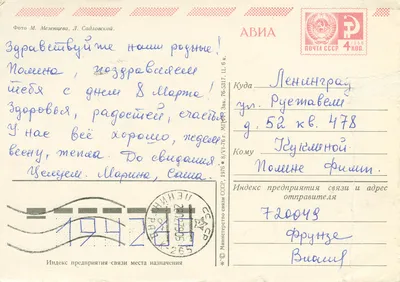 Фото М. Мезенцева, Л. Садловской
АВИА
ПОЧТА СССР
4 КОП.
Здравствуйте наши родные!
Полина, поздравляем
тебя с днем 8 Марта.
Здоровья, радостей, счастья
У нас всё хорошо, ждем
весну, тепла. До свидания
Целуем. Марина, Саша.
Куда Ленинград
ул. Руставели
д. 52 кв. 478
Кому Кукминой
Полине Филип.
Индекс предприятия связи и адрес отправителя
720049
Фрунзе
© Министерство связи СССР, 1975
ЛЕНИНГРАД
СССР
194265
Индекс предприятия связи места назначения